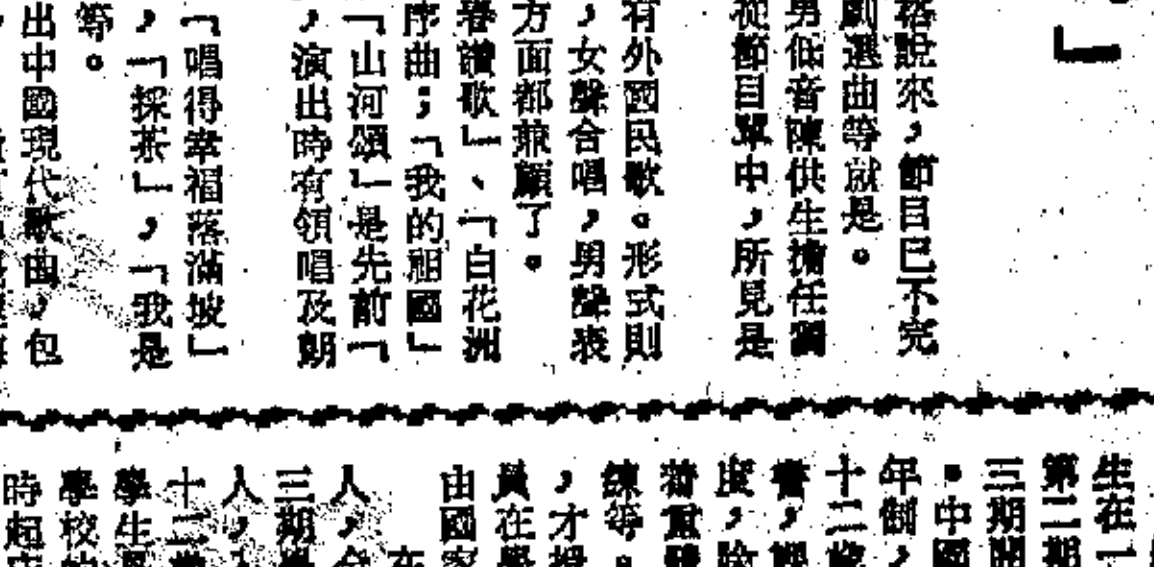 」
說來，節目已不完
劇選曲等就是。
男低音陳供生擔任獨
從節目單中，所見是
有外國民歌。形式則
，女聲合唱，男聲表
方面都兼顧了。
春讚歌」、「白花洲
序曲；「我的祖國」
「山河頌」是先前「
，演出時有領唱及朗
「唱得幸福落滿坡」
，「採茶」，「我是
等。
出中國現代歌曲，包
生在一
第二期
三期開
。中國
年制，
十二歲
度，
着重
練等。
，才
員在學
由國家
在
人，
三期
人，
十二
學生
學校的
時超